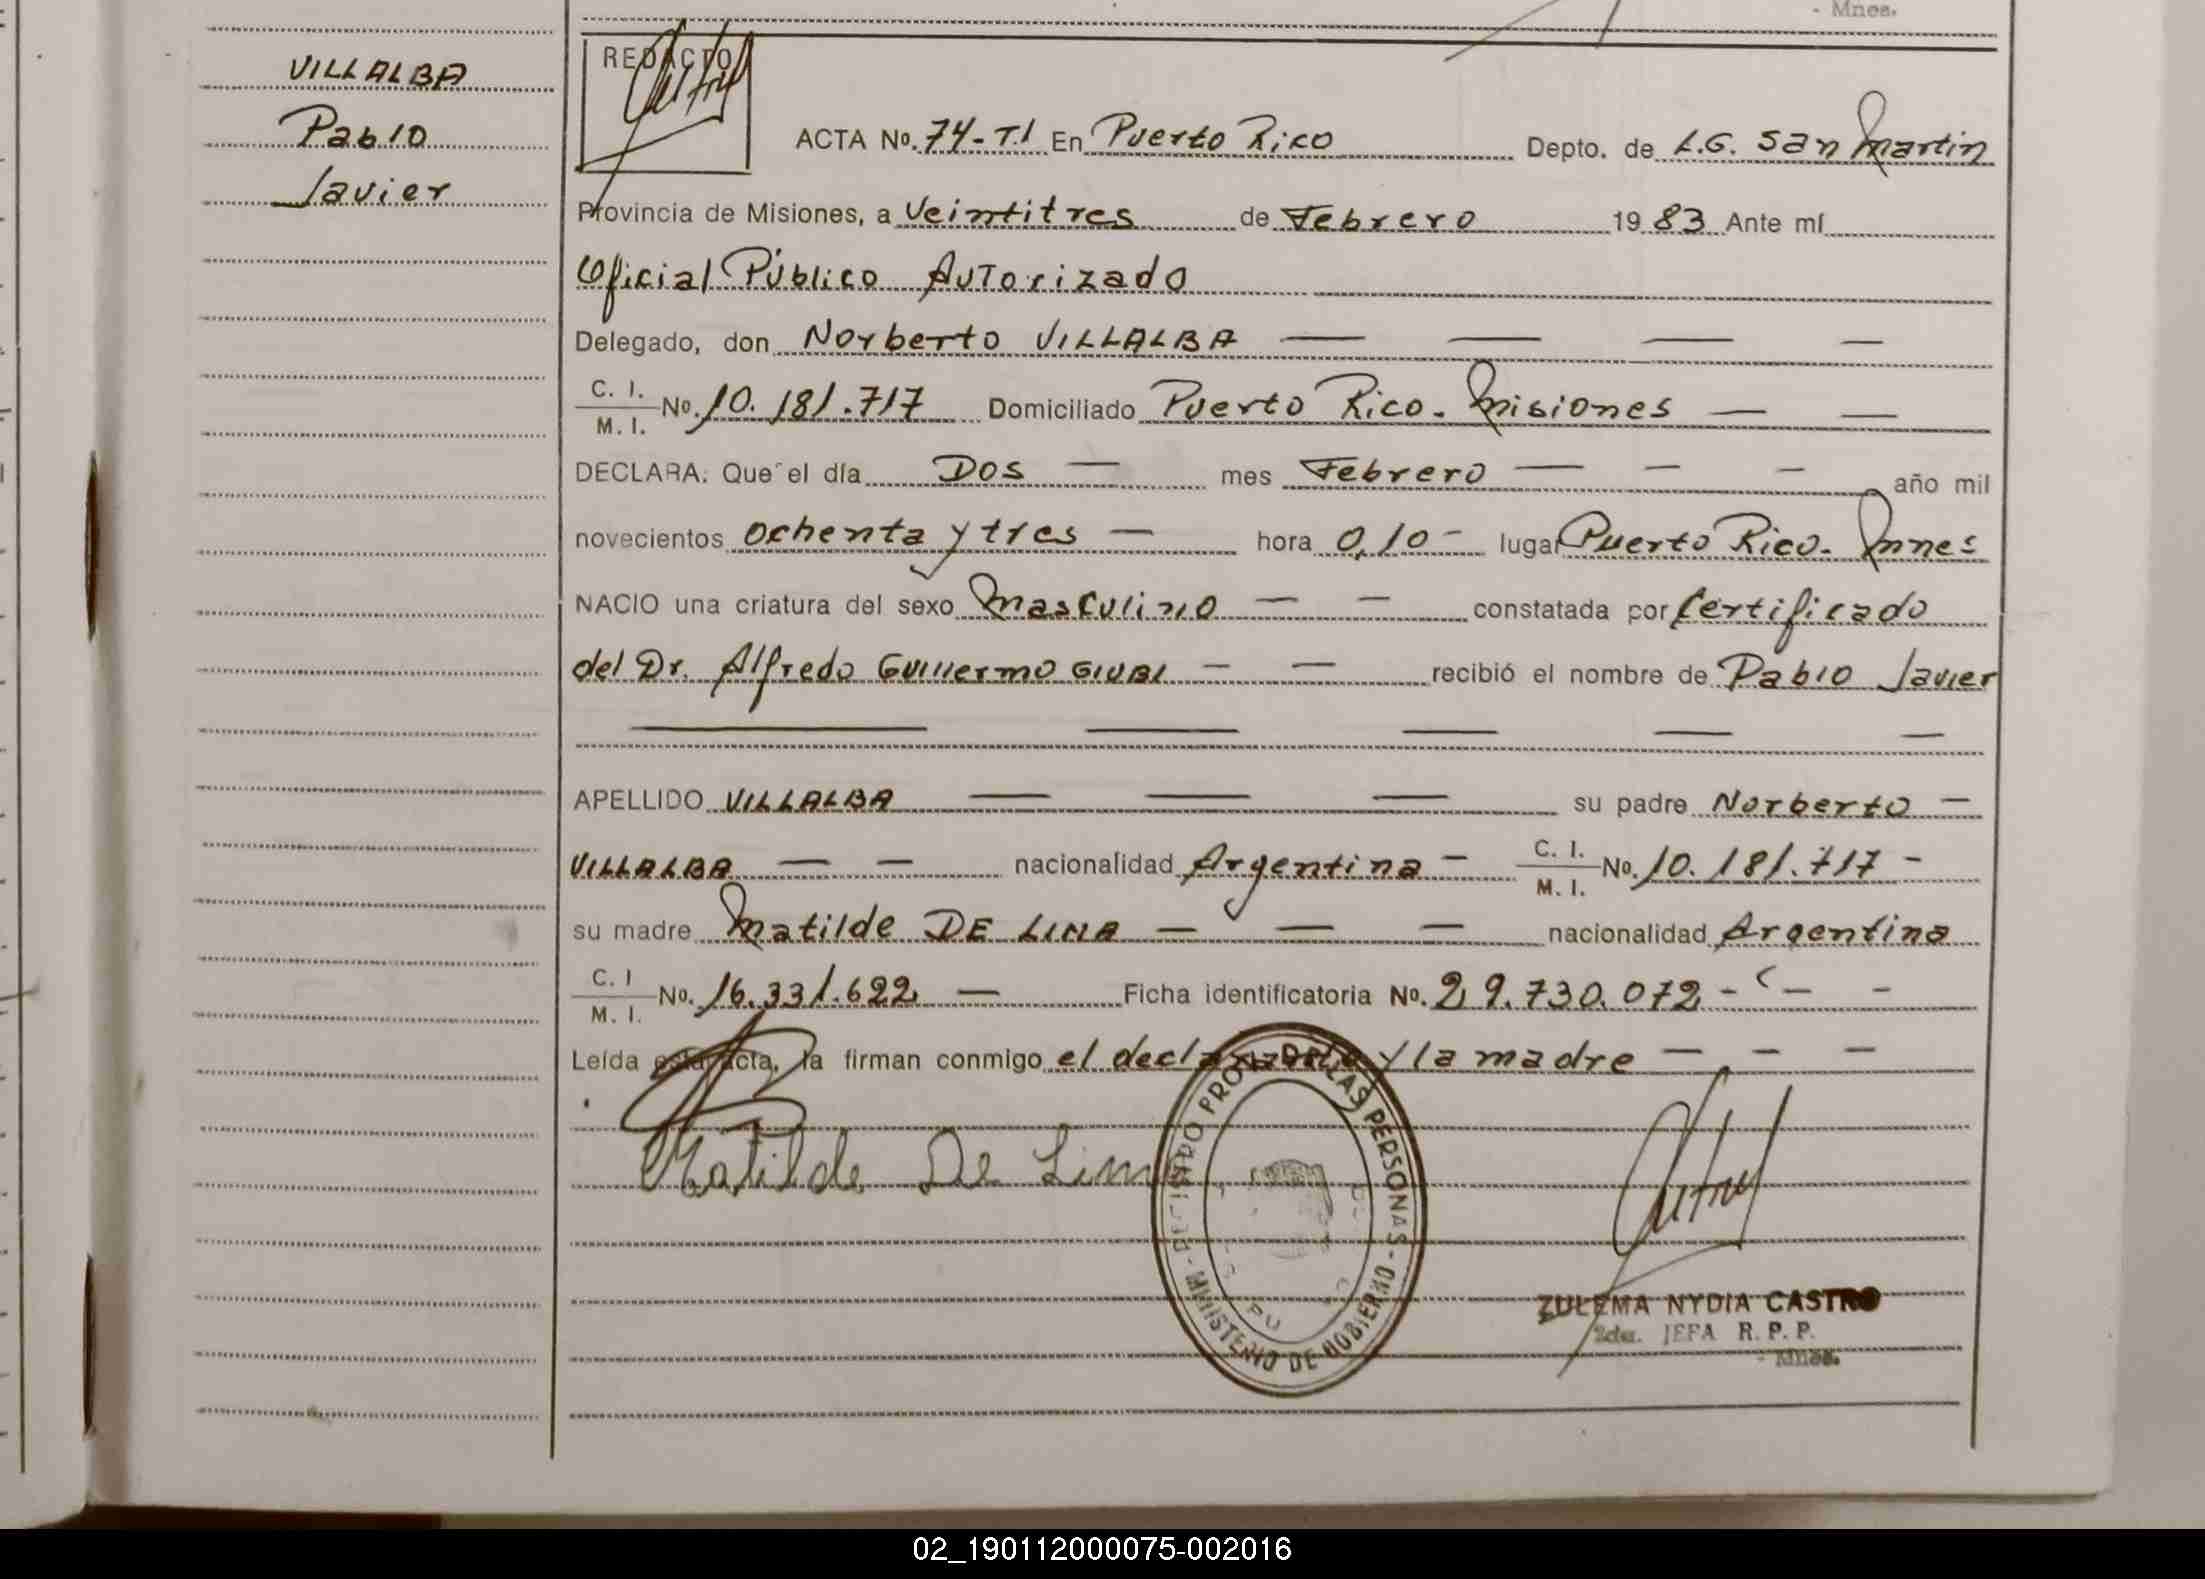 - Mnes.
VILLALBA
Pablo
Javier
REDACTO
ACTA No. 74-T.I En Puerto Rico Depto. de L.G. San Martin
Provincia de Misiones, a Veintitres de Febrero 1983 Ante mí
Oficial Público Autorizado
Delegado, don Norberto VILLALBA — — — —
C. I.
M. I. No. 10.181.717 Domiciliado Puerto Rico. Misiones — —
DECLARA: Que el día DOS — mes Febrero — — — año mil
novecientos ochenta y tres — hora 0,10 - lugar Puerto Rico. Mnes
NACIO una criatura del sexo Masculino — — constatada por Certificado
del Dr. Alfredo Guillermo GIUBI — — recibió el nombre de Pablo Javier
— — — — —
APELLIDO VILLALBA — — — su padre Norberto —
VILLALBA — — nacionalidad Argentina — C. I.
M. I. No. 10.181.717 -
su madre Matilde DE LIMA — — — nacionalidad Argentina
C. I
M. I. No. 16.331.622 — Ficha identificatoria No. 29.730.072 - — -
Leída esta acta, la firman conmigo el declarante y la madre — — —
Matilde De Lima
PROV. DE LAS PERSONAS - MINISTERIO DE GOBIERNO -
ZULEMA NYDIA CASTRO
2da. JEFA R. P. P.
- Mnes.
02_190112000075-002016